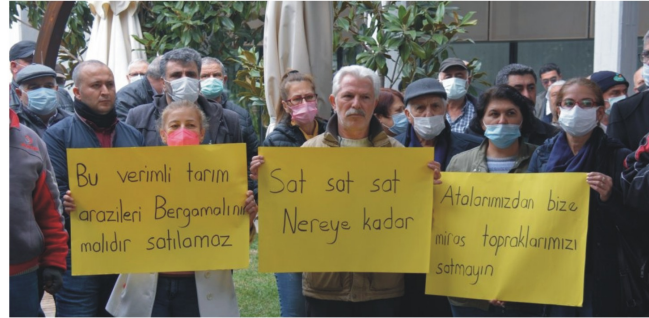 Bu verimli tarım
arazileri Bergamalının
malıdır satılamaz
Sat sat sat
Nereye kadar
Atalarımızdan bize
miras topraklarımızı
satmayın